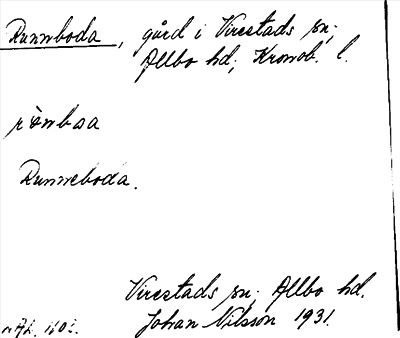 Runnboda, gård i Virestads sn;
Allbo hd; Kronob. l.
rònbsa
Runneboda.
Virestads sn; Allbo hd.
Johan Nilsson 1931.